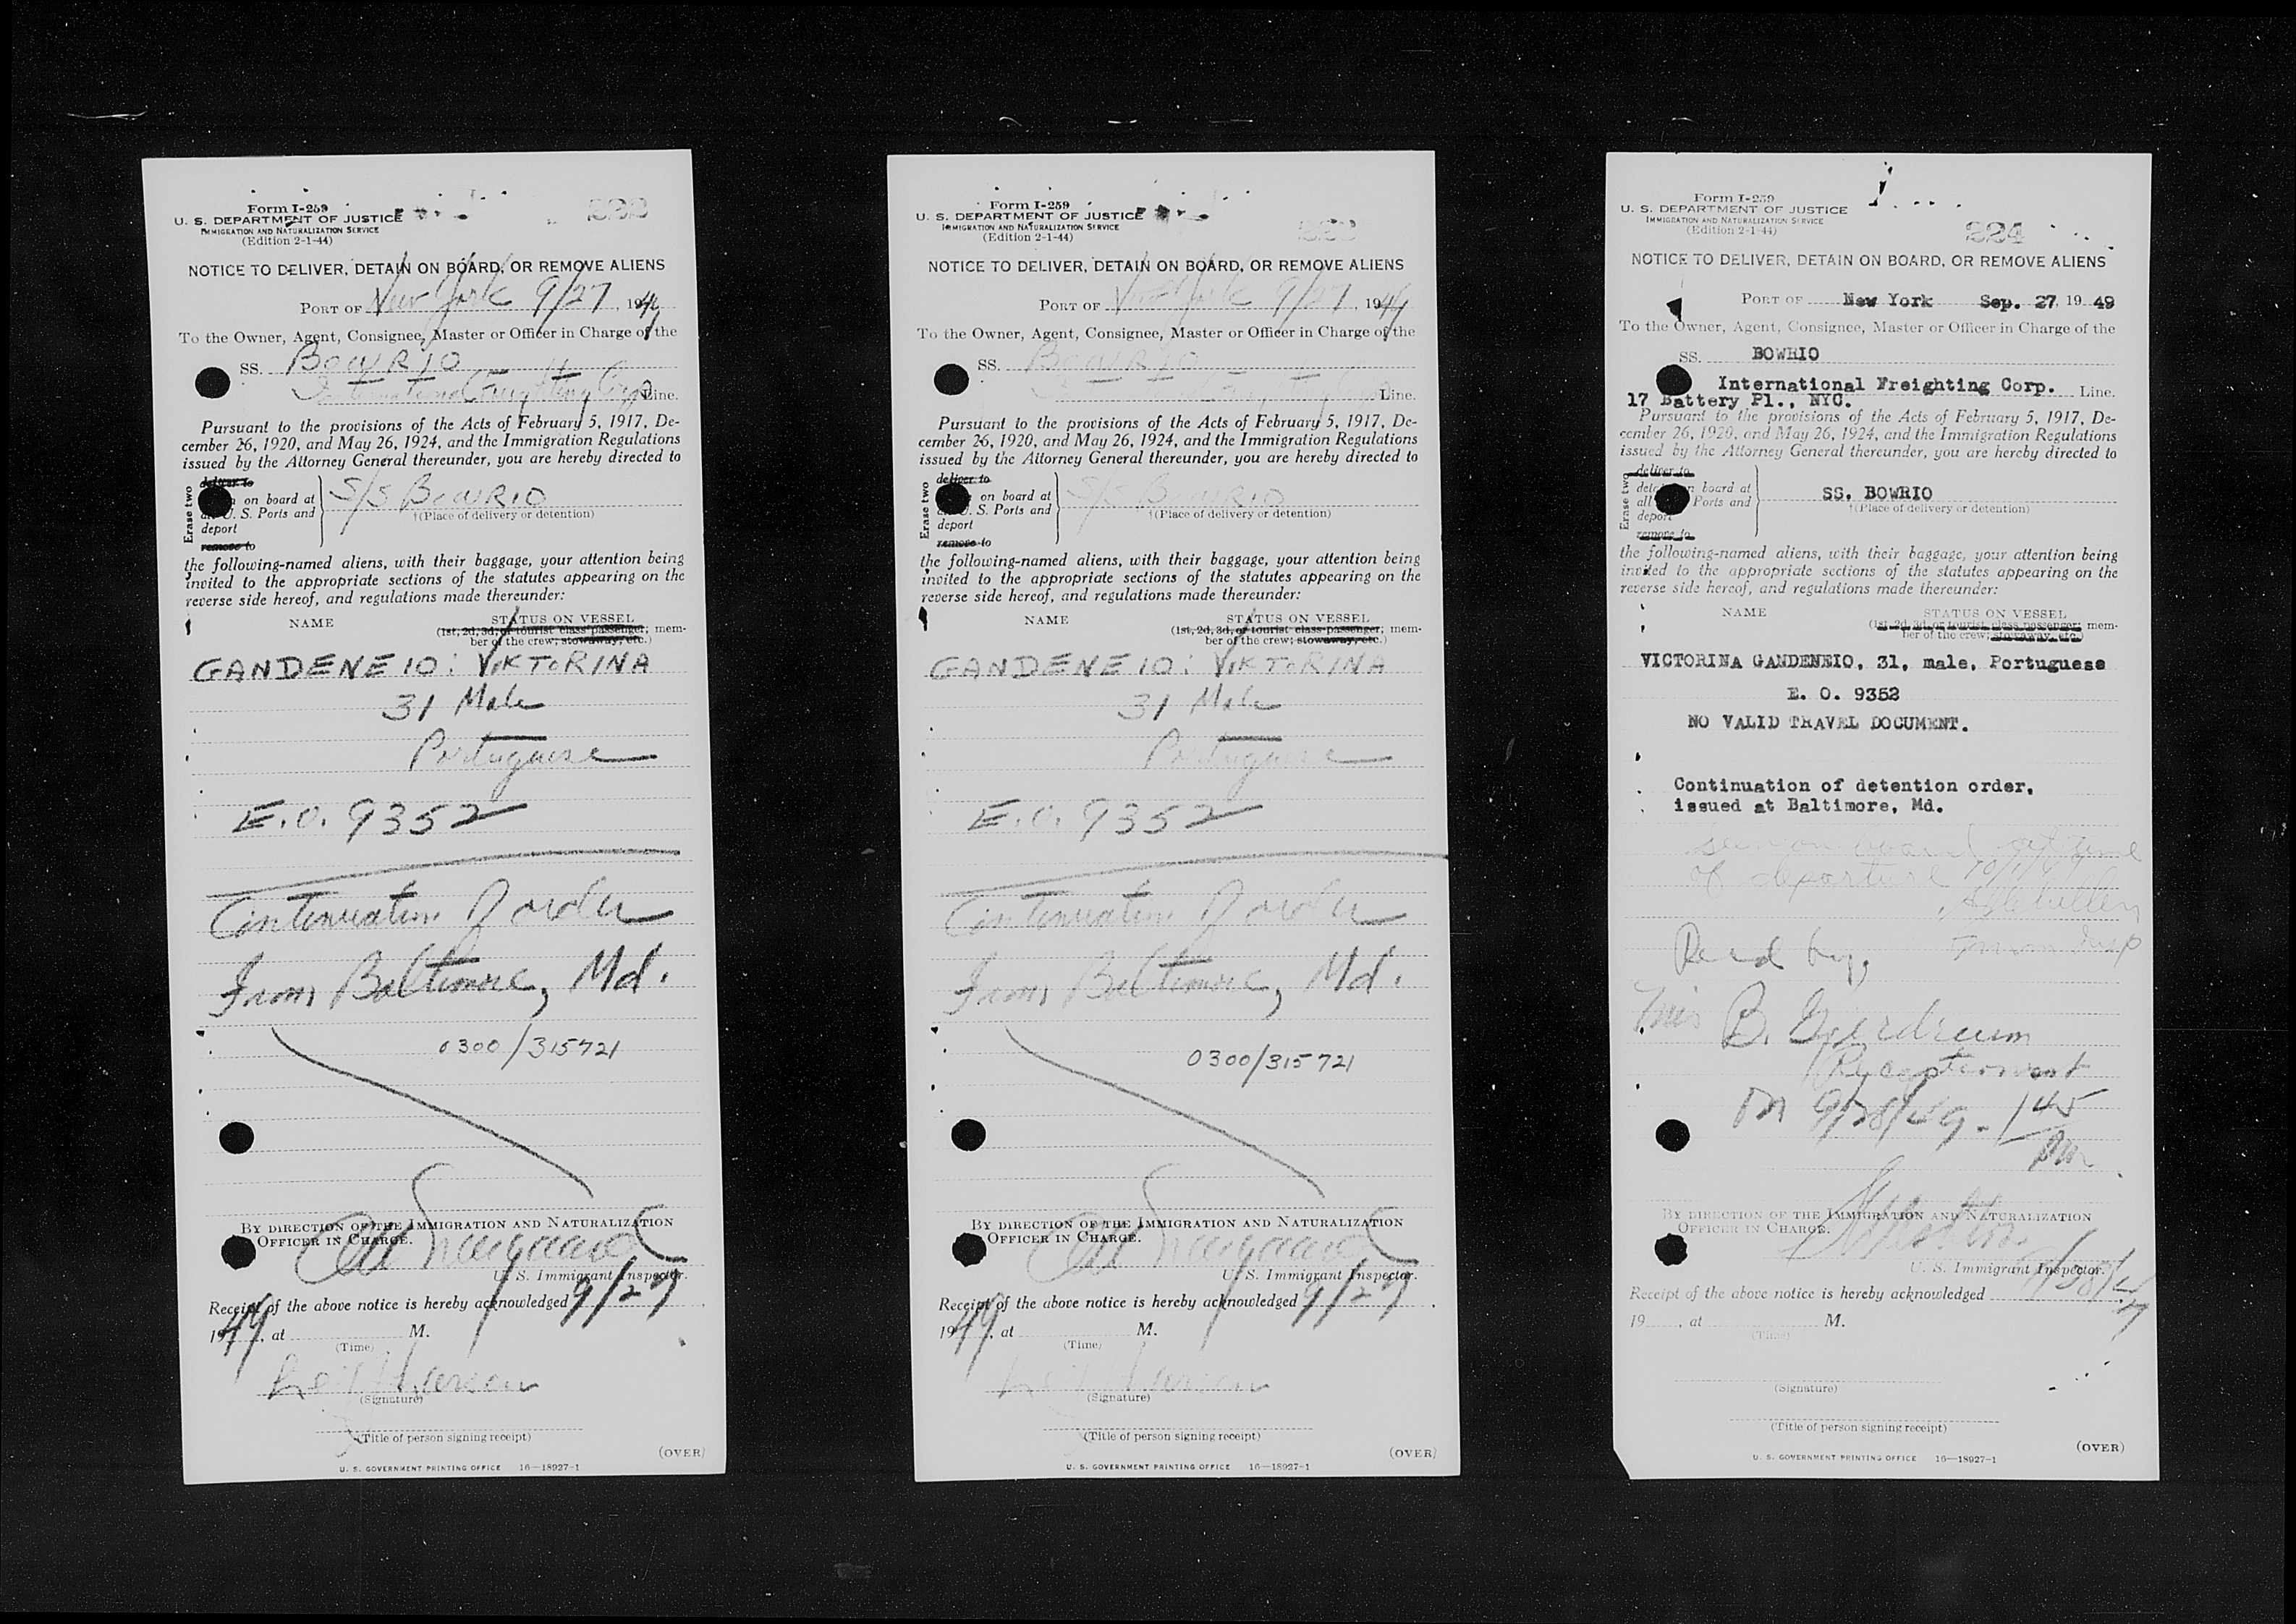 Form I-259
U. S. DEPARTMENT OF JUSTICE
IMMIGRATION AND NATURALIZATION SERVICE
(Edition 2-1-44)
NOTICE TO DELIVER, DETAIN ON BOARD, OR REMOVE ALIENS
PORT OF New York 9/27, 1949
To the Owner, Agent, Consignee, Master or Officer in Charge of the
SS. BOWRIO
International Freighting Corp Line.
Pursuant to the provisions of the Acts of February 5, 1917, De-
cember 26, 1920, and May 26, 1924, and the Immigration Regulations
issued by the Attorney General thereunder, you are hereby directed to
Erase two
deliver to
on board at
U. S. Ports and
deport
remove to
S/S BOWRIO
†(Place of delivery or detention)
the following-named aliens, with their baggage, your attention being
invited to the appropriate sections of the statutes appearing on the
reverse side hereof, and regulations made thereunder:
NAME STATUS ON VESSEL
(1st, 2d, 3d, or tourist class passenger; mem-
ber of the crew; stowaway, etc.)
GANDENEIO: VIKTORINA
31 Male
Portuguese
E.O. 9352
Continuation of order
From Baltimore, Md.
0300/315721
BY DIRECTION OF THE IMMIGRATION AND NATURALIZATION
OFFICER IN CHARGE.
U. S. Immigrant Inspector.
Receipt of the above notice is hereby acknowledged 9/27
1949, at M.
(Time)
(Signature)
(Title of person signing receipt)
(OVER)
U. S. GOVERNMENT PRINTING OFFICE 16—18927-1
Form I-259
U. S. DEPARTMENT OF JUSTICE
IMMIGRATION AND NATURALIZATION SERVICE
(Edition 2-1-44)
NOTICE TO DELIVER, DETAIN ON BOARD, OR REMOVE ALIENS
PORT OF New York 9/27, 1949
To the Owner, Agent, Consignee, Master or Officer in Charge of the
SS. BOWRIO
Line.
Pursuant to the provisions of the Acts of February 5, 1917, De-
cember 26, 1920, and May 26, 1924, and the Immigration Regulations
issued by the Attorney General thereunder, you are hereby directed to
Erase two
deliver to
on board at
U. S. Ports and
deport
remove to
S/S BOWRIO
†(Place of delivery or detention)
the following-named aliens, with their baggage, your attention being
invited to the appropriate sections of the statutes appearing on the
reverse side hereof, and regulations made thereunder:
NAME STATUS ON VESSEL
(1st, 2d, 3d, or tourist class passenger; mem-
ber of the crew; stowaway, etc.)
GANDENEIO: VIKTORINA
31 Male
Portuguese
E.O. 9352
Continuation of order
From Baltimore, Md.
0300/315721
BY DIRECTION OF THE IMMIGRATION AND NATURALIZATION
OFFICER IN CHARGE.
U. S. Immigrant Inspector.
Receipt of the above notice is hereby acknowledged 9/27
1949, at M.
(Time)
(Signature)
(Title of person signing receipt)
(OVER)
U. S. GOVERNMENT PRINTING OFFICE 16—18927-1
Form I-259
U. S. DEPARTMENT OF JUSTICE
IMMIGRATION AND NATURALIZATION SERVICE
(Edition 2-1-44)
224
NOTICE TO DELIVER, DETAIN ON BOARD, OR REMOVE ALIENS
PORT OF New York Sep. 27, 1949
To the Owner, Agent, Consignee, Master or Officer in Charge of the
SS. BOWRIO
International Freighting Corp. Line.
17 Battery Pl., NYC.
Pursuant to the provisions of the Acts of February 5, 1917, De-
cember 26, 1920, and May 26, 1924, and the Immigration Regulations
issued by the Attorney General thereunder, you are hereby directed to
Erase two
deliver to
board at
all Ports and
deport
remove to
SS. BOWRIO
†(Place of delivery or detention)
the following-named aliens, with their baggage, your attention being
invited to the appropriate sections of the statutes appearing on the
reverse side hereof, and regulations made thereunder:
NAME STATUS ON VESSEL
(1st, 2d, 3d, or tourist class passenger; mem-
ber of the crew; stowaway, etc.)
VICTORINA GANDENEIO, 31, male, Portuguese
E. O. 9352
NO VALID TRAVEL DOCUMENT.
Continuation of detention order,
issued at Baltimore, Md.
seen on board at time
of departure
Recd by,
Miss B.
Receptionist
on 9/28/49. 1 45
PM
BY DIRECTION OF THE IMMIGRATION AND NATURALIZATION
OFFICER IN CHARGE.
U. S. Immigrant Inspector.
Receipt of the above notice is hereby acknowledged 9/28/49
19 , at M.
(Time)
(Signature)
(Title of person signing receipt)
(OVER)
U. S. GOVERNMENT PRINTING OFFICE 16—18927-1